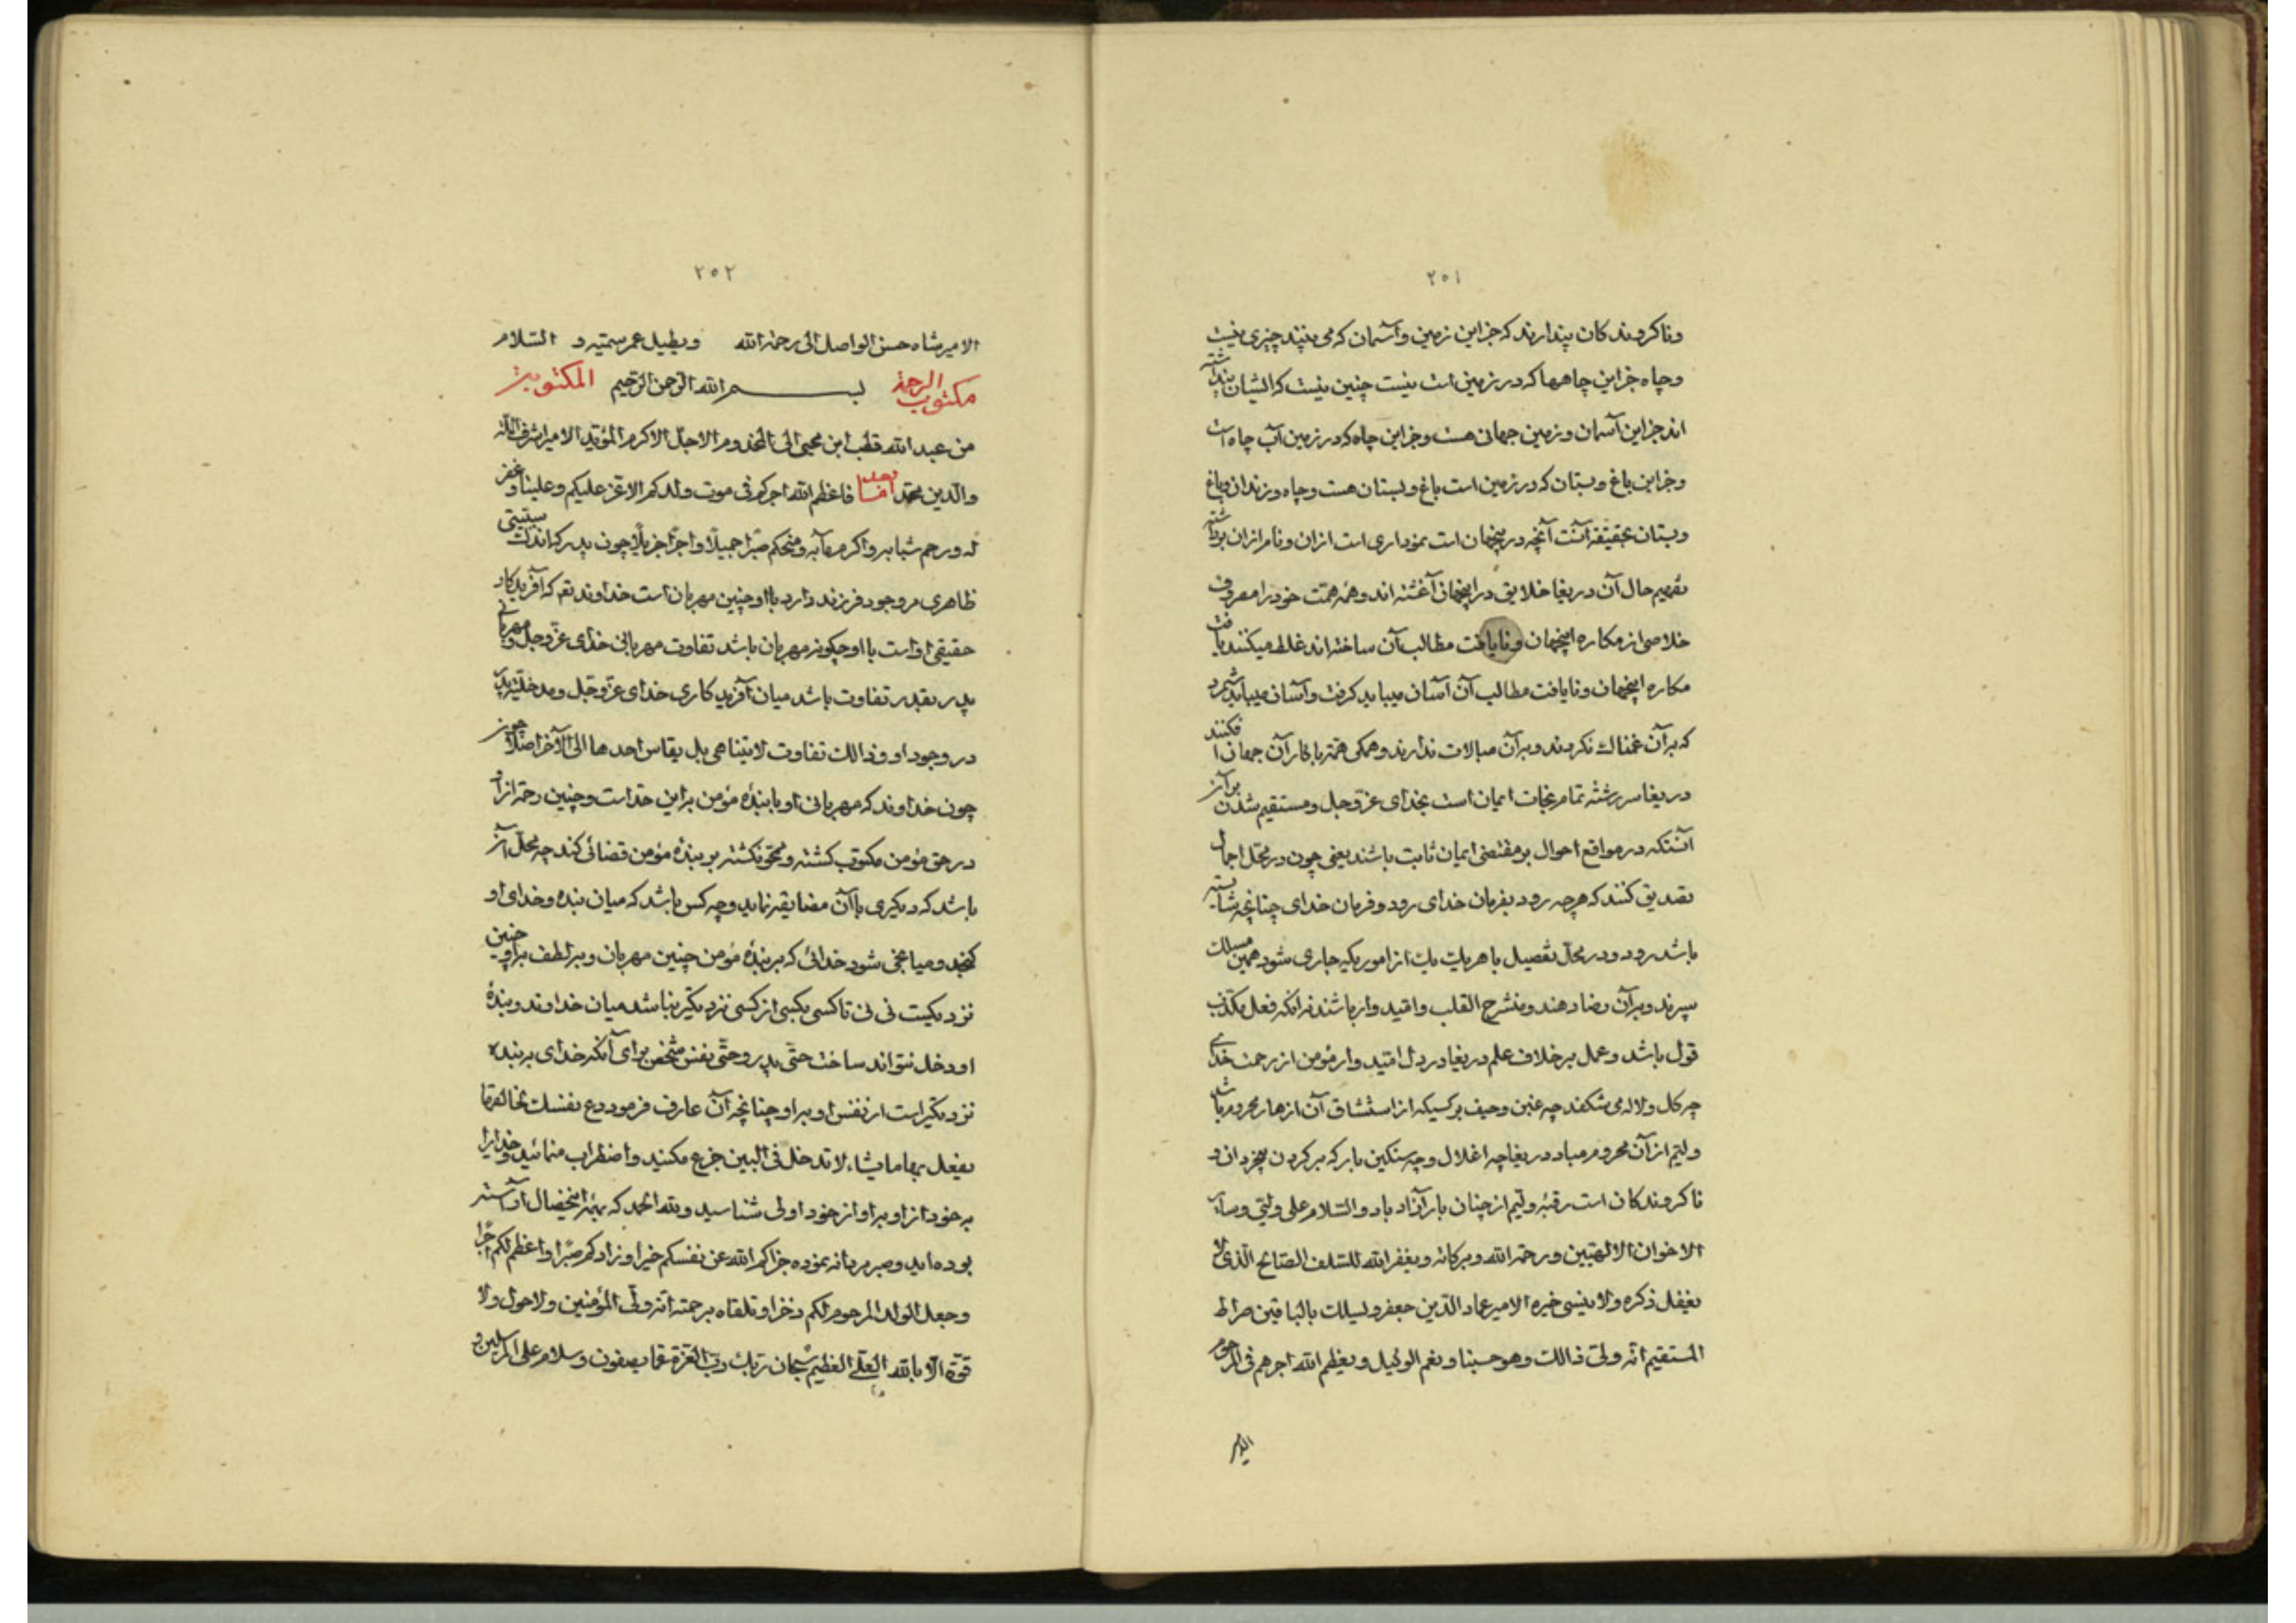 ۲۵۱
وناکروندکان پندارند که جز این زمین و آسمان که می بینند چیزی نیست
وچاه جز این چاهها که در زمین است نیست چنین نیست که ایشان پنداشته
اند جز این آسمان و زمین جهانی هست وجز این چاه که در زمین آب چاه است
وجز این باغ وبستان که در زمین است باغ و بستان هست وچاه و زندان وباغ
وبستان بحقیقة آنست آنچه درینجهان است نموداری است ازان ونام ازان برداشته
حال آن دریغا خلایق در اینجهان آغشته اند وهمه همّت خود را مصروف
خلاصی از مکاره اینجهان ونایافت مطالب آن ساخته اند غلط میکنند یافت
مکاره اینجهان ونایافت مطالب آن آسان میباید کرفت وآسان میباید شمرد
که بر آن غمناك نکردند وبر آن مبالات ندارند وهمکی همّت با کار آن جهان افکنند
دریغا سررشته تمام نجات ایمان است بخدای عزّ وجل ومستقیم شدن بر آن
آنستکه در مواقع احوال بر مقتضی ایمان ثابت باشند یعنی چون در محلّ اجمال
تصدیق کنند که هرچه رود بفرمان خدای رود وفرمان خدای چنانچه شایسته
باشد رود ودر محلّ تفصیل با هر یك یك از امور یکه جاری شود همین مسلك
سپرند وبر آن رضا دهند ومنشرح القلب وامّید وار باشند نه آنکه فعل مکذب
قول باشد وعمل بر خلاف علم دریغا در دل امّید وار مؤمن از رحمت خدای
چه کل ولاله می شکفد چه غبن وحیف بر کسیکه از استنشاق آن ازهار محروم باشد
ولیّم از آن محروم مباد دریغا چه اغلال وچه سنکین بار که بر کردن بیخردان و
ناکروندکان است رقبهٔ ولیّم از چنان بار آزاد باد والسّلام علی ولیّی وسایر
الاخوان الالهیّین ورحمة الله وبرکاته ویغفر الله للسّلف الصّالح الّذی لا
یغفل ذکره ولا ینسی خیره الامیر عماد الدّین جعفر ویسلك بالباقین صراط
المستقیم انّه ولیّ ذالك وهو حسبنا ونعم الوکیل ویعظم الله اجرهم فی المرحوم
الامیر
۲۵۲
الامیر شاه حسن الواصل الی رحمة الله ویطیل عمر سمیّه و السّلام
مکتوب الرحمة بسم الله الرّحمن الرّحیم المکتوب
من عبد الله قطب ابن محیی الی المخدوم الاجلّ الاکرم المؤیّد الامیر شرف الملّة
والدّین محمّد امّا بعد فاعظم الله اجرکم فی موت ولدکم الاعزّ علیکم وعلینا وغفر
له ورحم شبابه واکرم مآبه ومنحکم صبرًا جمیلًا واجرًا جزیلًا چون پدر که اندك سببیّتی
ظاهری در وجود فرزند دارد با او چنین مهربان است خداوند تع که آفریدکار
حقیقی او است با او چکونه مهربان باشد تفاوت مهربانی خدای عزّ وجل ومهربانی
پدر بقدر تفاوت باشد میان آفریدکاری خدای عزّ وجل ومدخلیّت پدر
در وجود او وذالك تفاوت لا یتناهی بل یقاس احدهما الی الآخر اصلًا
چون خداوند که مهربانی او با بندهٔ مؤمن بر این حد است وچنین رحمت از او
در حق مؤمن مکتوب کشته ومحو نکشته بر بندهٔ مؤمن قضائی کند چه محلّ آن
باشد که دیکری با آن مضایقه نماید وچه کس باشد که میان بنده وخدای او
کنجد ومیانجی شود خدائی که بر بندهٔ مؤمن چنین مهربان وبر لطف بر او چنین
نزدیکست نی نی تا کسی بکسی از کسی نزدیکتر نباشد میان خداوند وبندهٔ
او دخل نتواند ساخت حتّی پدر وحتّی نفس شخص برای آنکه خدای بر بنده
نزدیکتر است از نفس او بر او چنانچه آن عارف فرمود دع نفسك لخالقها
یفعل بها ما یشاء لا تدخل فی البین جزع مکنید واضطراب منمائید وخدایرا
بر خود از او بر او از خود اولی شناسید ولله الحمد که باینخصال آراسته
بوده اید وصبر مردانه نموده جزاکم الله عن نفسکم خیرا وزادکم صبرًا واعظم لکم اجرًا
وجعل الولد المرحوم لکم ذخرا وتلقاه برحمته انّه ولیّ المؤمنین ولا حول ولا
قوّة الّا بالله العلیّ العظیم سبحان ربّك ربّ العزّة عمّا یصفون وسلام علی المرسلین و